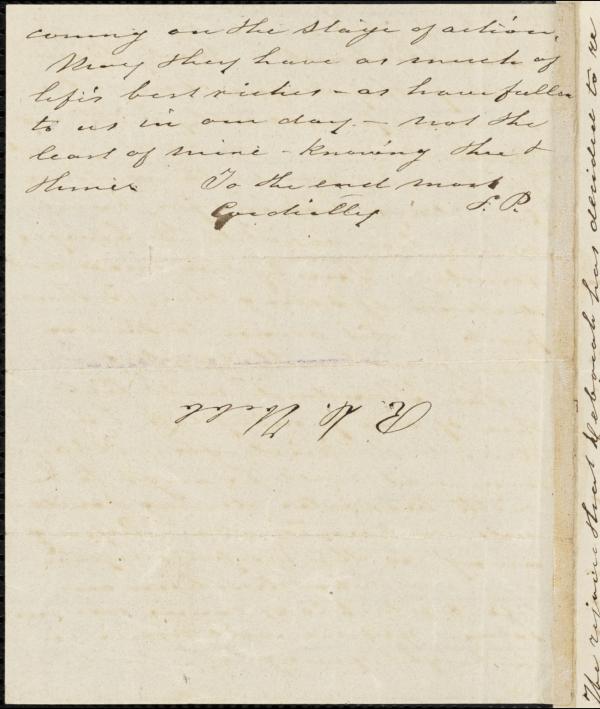 coming on the stage of action.
May they have as much of
life's best riches - as have fallen
to us in our day - not the
least of mine - knowing thee &
thine. To the end most
Cordially S. P.
R. D. Webb
We rejoice that Deborah has decided to re